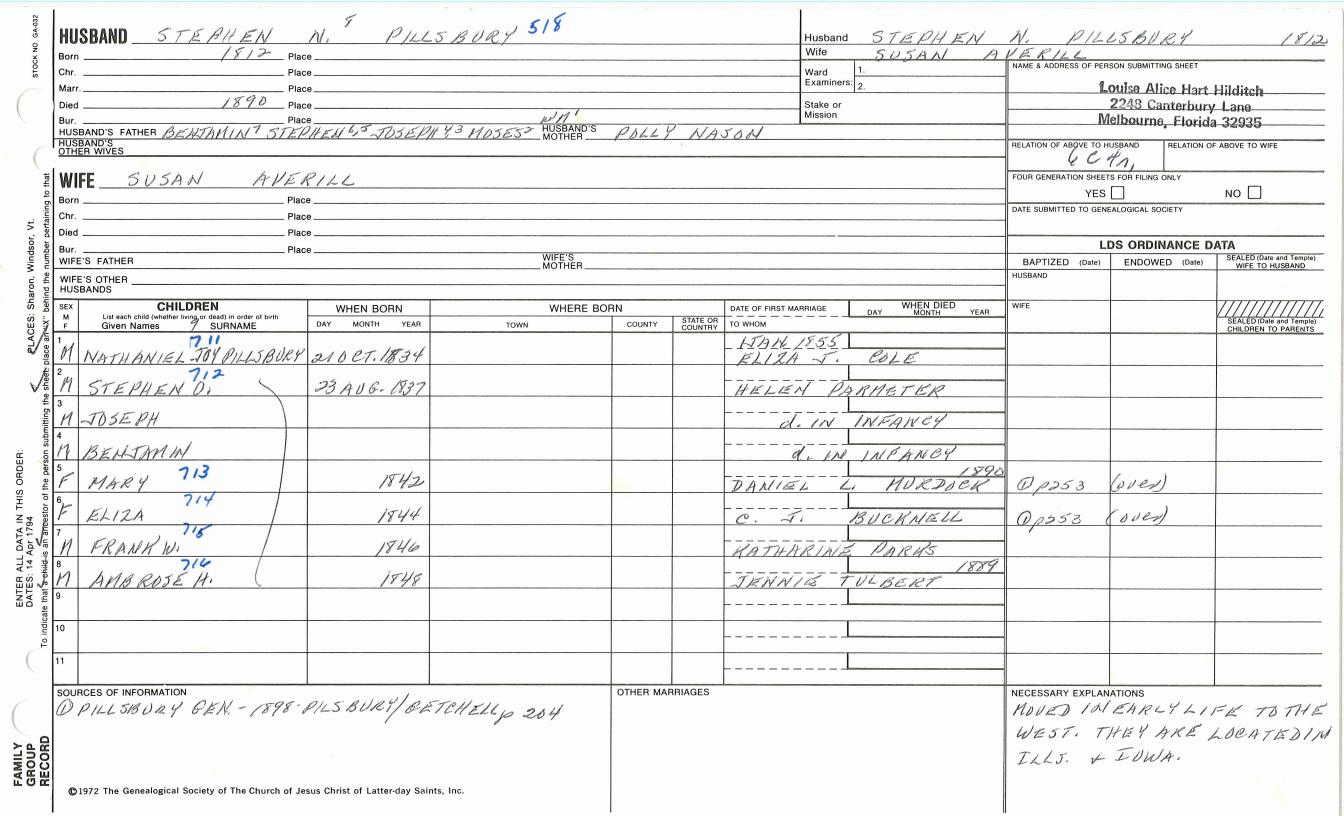 STOCK NO. GA-032
HUSBAND STEPHEN N. 8 PILLSBURY 518
Born 1812 Place
Chr. Place
Marr. Place
Died 1890 Place
Bur. Place
HUSBAND'S FATHER BENJAMIN7 STEPHEN6,5 JOSEPH4,3 MOSES2 WM1 HUSBAND'S MOTHER POLLY NASON
HUSBAND'S OTHER WIVES
Husband STEPHEN N. PILLSBURY 1812
Wife SUSAN AVERILL
Ward Examiners: 1.
2.
Stake or Mission
NAME & ADDRESS OF PERSON SUBMITTING SHEET
Louise Alice Hart Hilditch
2243 Canterbury Lane
Melbourne, Florida 32935
RELATION OF ABOVE TO HUSBAND RELATION OF ABOVE TO WIFE
6C4r,
FOUR GENERATION SHEETS FOR FILING ONLY
YES NO
DATE SUBMITTED TO GENEALOGICAL SOCIETY
WIFE SUSAN AVERILL
Born Place
Chr. Place
Died Place
Bur. Place
WIFE'S FATHER WIFE'S MOTHER
WIFE'S OTHER HUSBANDS
LDS ORDINANCE DATA
BAPTIZED (Date) ENDOWED (Date) SEALED (Date and Temple) WIFE TO HUSBAND
HUSBAND
WIFE
SEALED (Date and Temple) CHILDREN TO PARENTS
SEX M F CHILDREN WHEN BORN WHERE BORN DATE OF FIRST MARRIAGE WHEN DIED
List each child (whether living or dead) in order of birth
Given Names 9 SURNAME DAY MONTH YEAR TOWN COUNTY STATE OR COUNTRY TO WHOM DAY MONTH YEAR
1 711 1JAN 1855
M NATHANIEL JOY PILLSBURY 21 OCT. 1834 ELIZA J. COLE
2 712
M STEPHEN D. 23 AUG. 1837 HELEN PARMETER
3
M JOSEPH d. IN INFANCY
4
M BENJAMIN d. IN INFANCY
5 713 1890
F MARY 1842 DANIEL L. MURDOCK ① p253 (over)
6 714
F ELIZA 1844 C. J. BUCKNELL ① p253 (over)
7 715
M FRANK W. 1846 KATHARINE PARKS
8 716 1889
M AMBROSE H. 1848 JENNIE TULBERT
9
10
11
SOURCES OF INFORMATION
① PILLSBURY GEN. - 1898 - PILSBURY/GETCHELL p 204
OTHER MARRIAGES
NECESSARY EXPLANATIONS
MOVED IN EARLY LIFE TO THE
WEST. THEY ARE LOCATED IN
ILLS. & IOWA.
©1972 The Genealogical Society of The Church of Jesus Christ of Latter-day Saints, Inc.
FAMILY
GROUP
RECORD
ENTER ALL DATA IN THIS ORDER:
DATES: 14 Apr 1794 PLACES: Sharon, Windsor, Vt.
To indicate that a child is an ancestor of the person submitting the sheet, place an "X" behind the number pertaining to that